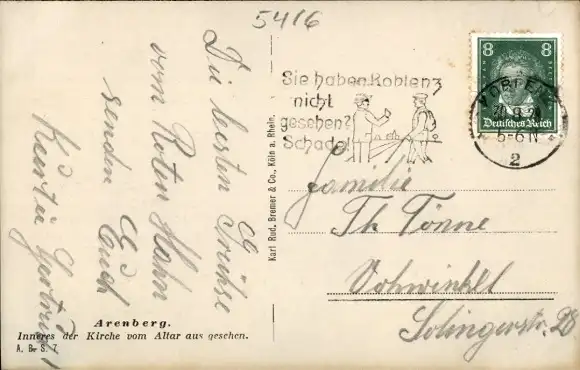 5416
Die besten Grüße
vom Roten Hahn
senden Euch
Kurt u. Gertrud
Arenberg.
Inneres der Kirche vom Altar aus gesehen.
A. B. S. 7.
Karl Rud. Bremer & Co., Köln a. Rhein.
Sie haben Koblenz
nicht
gesehen?
Schade!
8 8
Deutsches Reich
5-6N
2
Familie
Th. Tönne
Vohwinkel
Solingerstr. 28